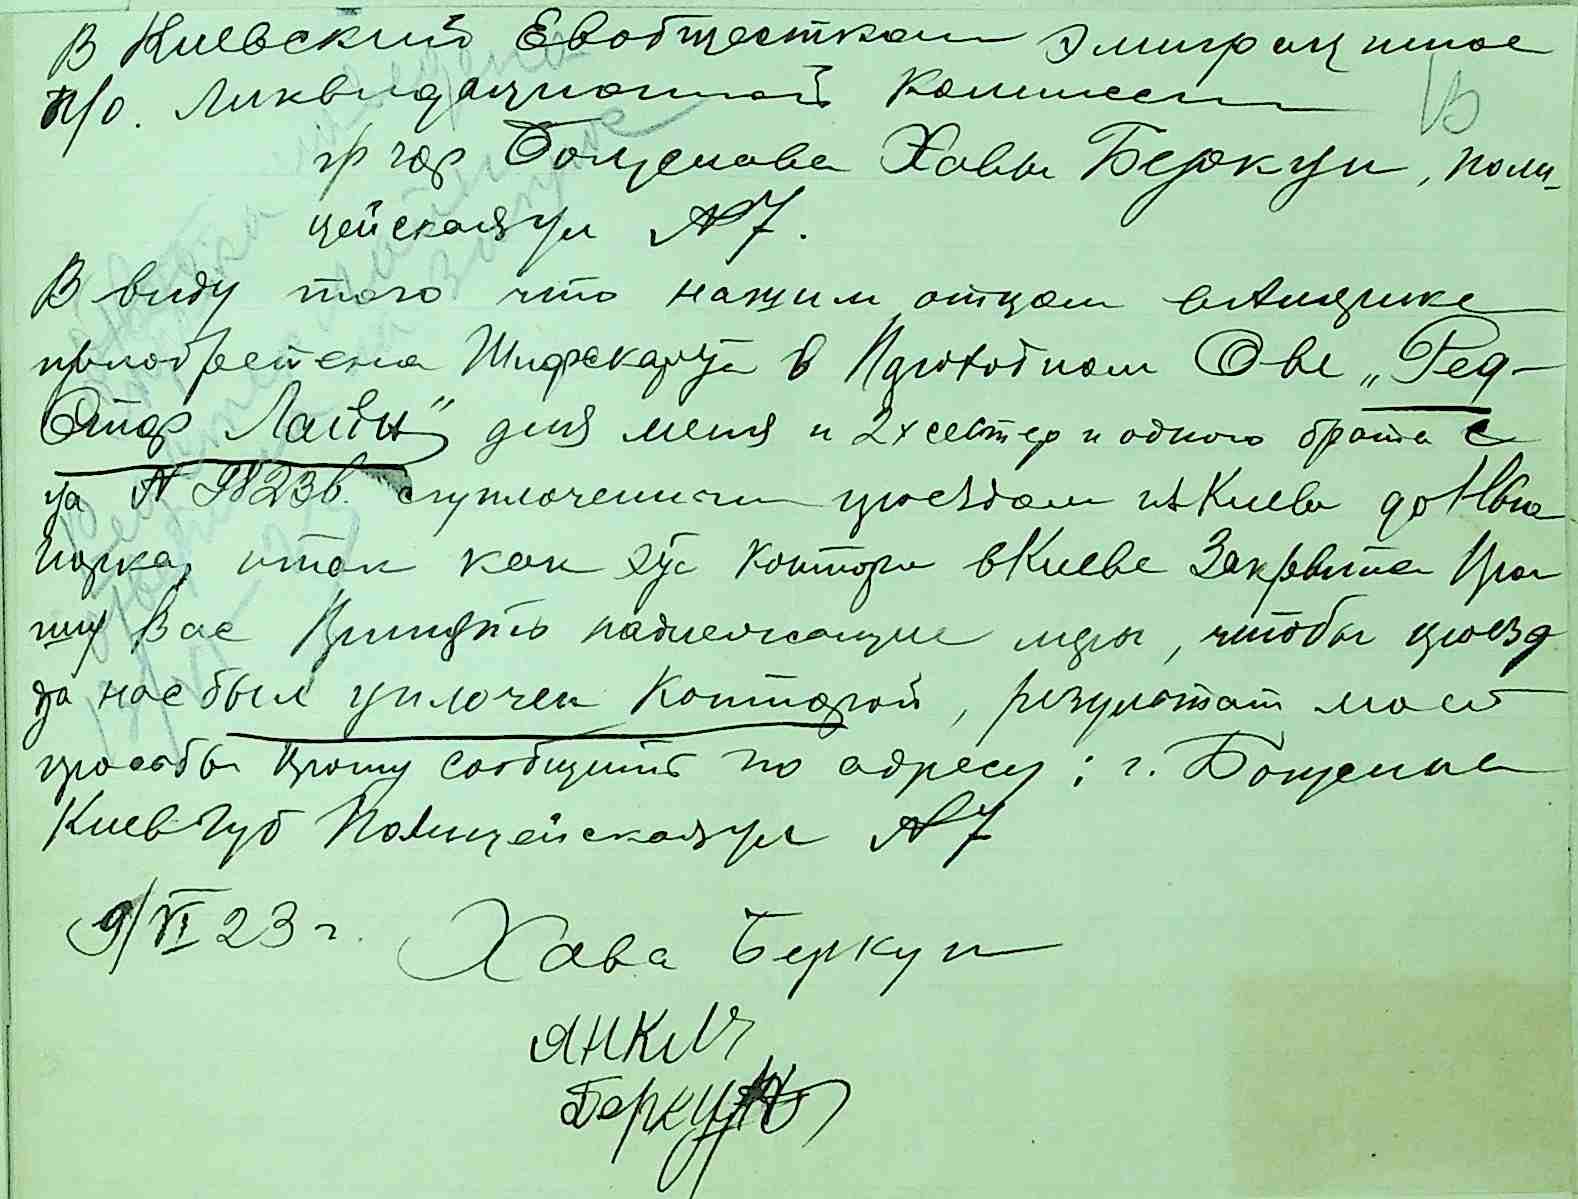 В Киевский Евобщестком Эмиграцион
п/о. Ликвидационной Комиссии
гр гор Богуслава Хавы Беркун, Поли-
цейская ул № 7.
В виду того что нашим отцом в Америке
приобретена Шифскарта в Пароходном О-ве „Ред-
Стар Лайн" для меня и 2х сестер и одного брата
за № суплоченным проездом из Киева до Нью
Иорка, и так как эта контора в Киеве Закрыта Про
шу Вас Принять надлежащие меры, чтобы проезд
за нас был уплочен Конторой, результат моей
просьбы прошу сообщить по адресу; г. Богуслав
Киев Губ Полицейская ул № 7
9/VI 23 г. Хава Беркун
ЯНКЛЬ
Беркун